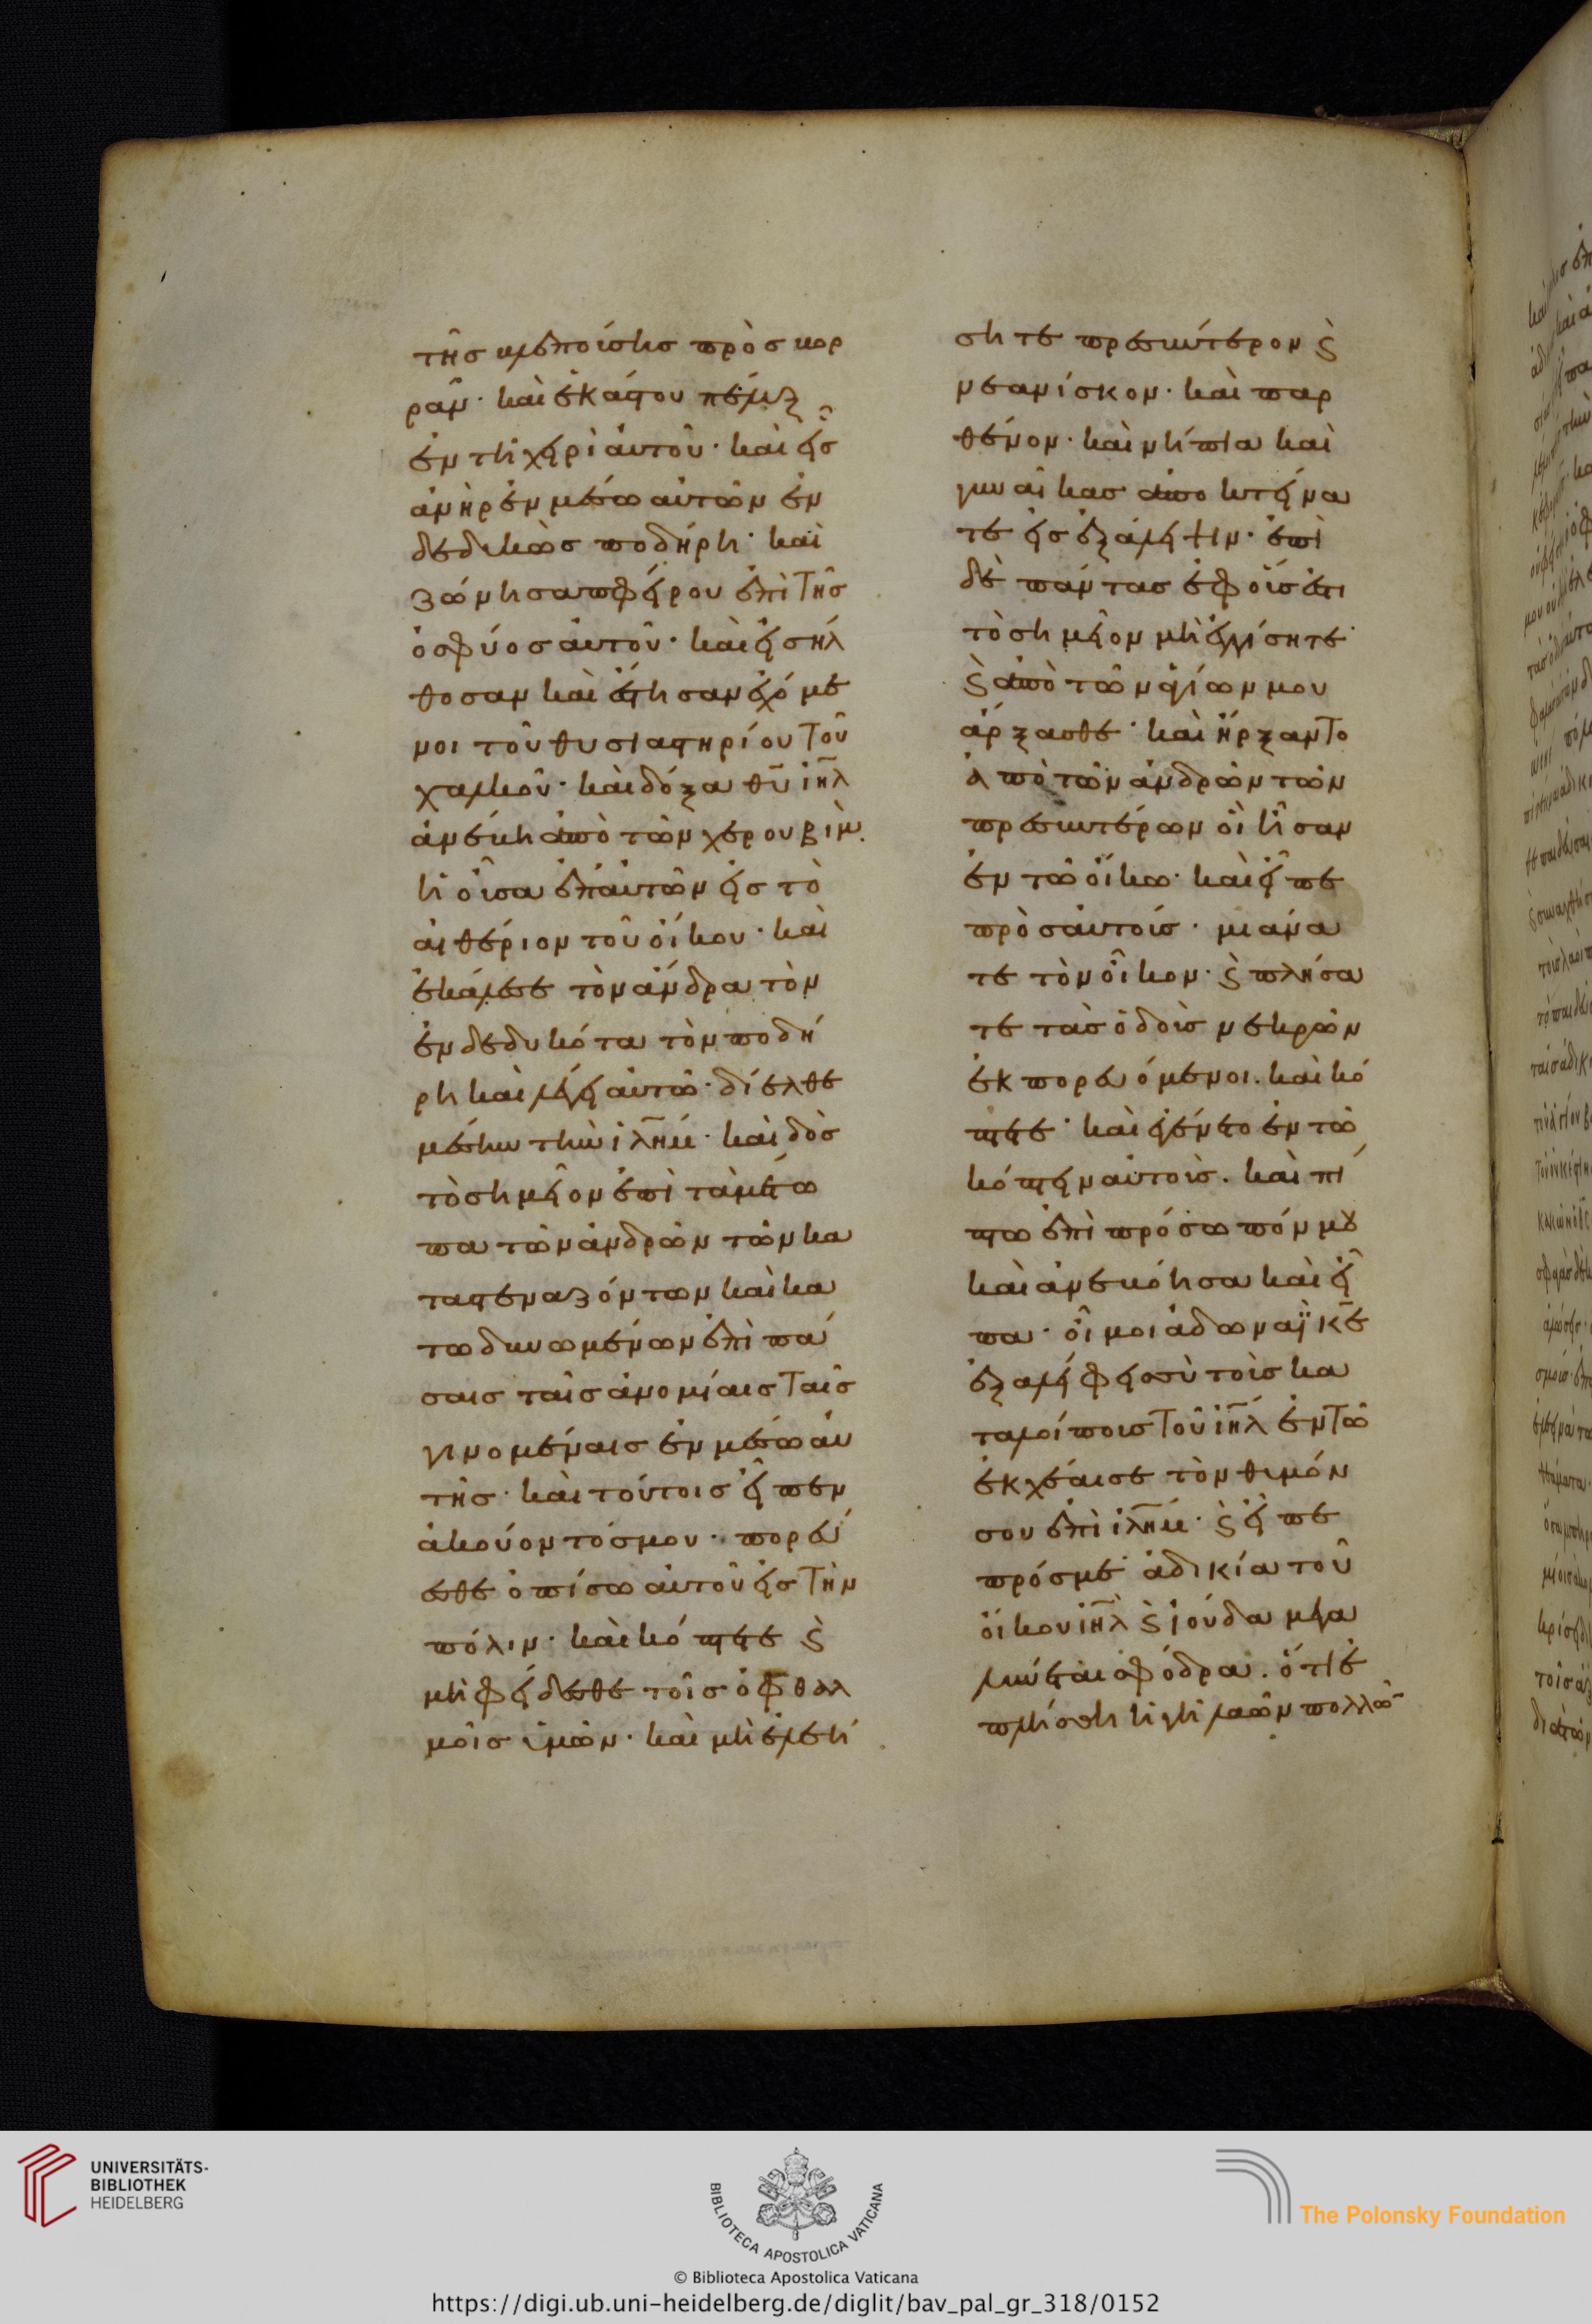 τῆσ βλεποίσησ πρὸσ βορ
ρᾶν· καὶ ἑκάστου πέλυξ
ἐν τῆ χειρὶ αὐτοῦ· καὶ εἷσ
ἀνὴρ ἐν μέσω αὐτῶν ἐν
δεδικὼσ ποδήρη· καὶ
ζώνη σαπφείρου ἐπὶ τῆσ
ὀσφύοσ αὐτοῦ· καὶ εἰσήλ
θοσαν καὶ ἔστησαν ἐχόμε
νοι τοῦ θυσιαστηρίου τοῦ
χαλκοῦ· καὶ δόξα θ̅υ̅ ι̅η̅λ̅
ἀνέβη ἀπὸ τῶν χερουβὶμ
ἡ οὖσα ἐπ' αὐτῶν εἰσ τὸ
αἰθέριον τοῦ οἴκου· καὶ
ἐκάλεσε τὸν ἄνδρα τὸν
ἐνδεδυκότα τὸν ποδή
ρη καὶ λέγει αὐτῶ· δίελθε
μέσην τὴν ι̅λ̅η̅μ̅· καὶ δὸσ
τὸ σημεῖον ἐπὶ τὰ μέτω
πα τῶν ἀνδρῶν τῶν κα
ταστεναζόντων καὶ κα
τωδυνωμένων ἐπὶ πά
σαισ ταῖσ ἀνομίαισ ταῖσ
γινομέναισ ἐν μέσω αὐ
τῆσ· καὶ τούτοισ εἶπεν
ἀκούοντόσ μου· πορεύ
εσθε ὀπίσω αὐτοῦ εἰσ τὴν
πόλιν· καὶ κόπτετε ϛ̀
μὴ φείδεσθε τοῖσ ὀφθαλ
μοῖσ ὑμῶν· καὶ μὴ ἐλεή
σητε πρεσβύτερον ϛ̀
νεανίσκον· καὶ παρ
θένον· καὶ νήπια καὶ
γυναῖκασ ἀποκτείνα
τε εἰσ ἐξάλειψιν· ἐπὶ
δὲ πάντασ ἐφ οἷσ ἐστι
τὸ σημεῖον μὴ ἐγγίσητε·
ϛ̀ ἀπὸ τῶν ἁγίων μου
ἄρξασθε· καὶ ἤρξαντο
ἀπὸ τῶν ἀνδρῶν τῶν
πρεσβυτέρων οἳ ἦσαν
ἐν τῶ οἴκω· καὶ εἶπε
πρὸσ αὐτούσ· μιάνα
τε τὸν οἶκον· ϛ̀ πλήσα
τε τὰσ ὁδοὺσ νεκρῶν
ἐκπορευόμενοι· καὶ κό
πτετε· καὶ ἐγένετο ἐν τῶ
κόπτειν αὐτοὺσ· καὶ πί
πτω ἐπὶ πρόσωπόν μου
καὶ ἀνεβόησα καὶ εἶ
πα· οἴμοι ἀδωναῒ κ̅ε̅
ἐξαλείφεισ σὺ τοὺσ κα
ταλοίπουσ τοῦ ι̅η̅λ̅ ἐν τῶ
ἐκχέαι σε τὸν θυμόν
σου ἐπὶ ι̅λ̅η̅μ̅· ϛ̀ εἶπε
πρόσ με· ἀδικία τοῦ
οἴκου ι̅η̅λ̅ ϛ̀ ἰούδα μεγα
λύνεται σφόδρα· ὅτι ἐ
πλήσθη ἡ γῆ λαῶν πολλῶ̅
UNIVERSITÄTS-
BIBLIOTHEK
HEIDELBERG
BIBLIOTECA APOSTOLICA VATICANA
The Polonsky Foundation
© Biblioteca Apostolica Vaticana
https://digi.ub.uni-heidelberg.de/diglit/bav_pal_gr_318/0152